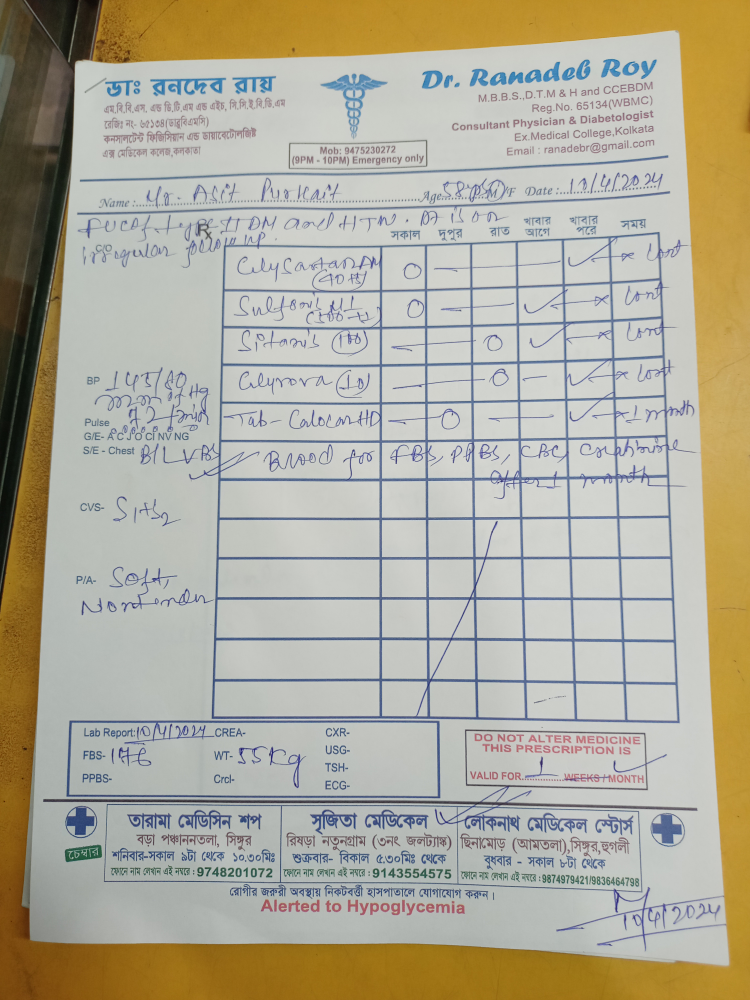 ডাঃ রনদেব রায়
এম.বি.বি.এস, এন্ড ডি.টি.এম এন্ড এইচ, সি.সি.ই.বি.ডি.এম
রেজিঃ নং- ৬৫১৩৪(ডাব্লুবিএমসি)
কনসালটেন্ট ফিজিসিয়ান এন্ড ডায়াবেটোলজিষ্ট
এক্স মেডিকেল কলেজ,কলকাতা
Mob: 9475230272
(9PM - 10PM) Emergency only
Dr. Ranadeb Roy
M.B.B.S.,D.T.M & H and CCEBDM
Reg.No. 65134(WBMC)
Consultant Physician & Diabetologist
Ex.Medical College,Kolkata
Email : ranadebr@gmail.com
Name : Mr. Asit Purkait Age 58 yrs M/F Date : 10/4/2024
type II DM and HTN. Pt is on
irregular follow up.
Rx
সকাল দুপুর রাত খাবার আগে খাবার পরে সময়
Glysartan AM (40+5) O — — ✓ × Cont
(500+1) O — — ✓ — × Cont
Sitanis (100) — O ✓ — × Cont
Glyrova (10) — O — ✓ × Cont
Tab- Calocor HD — O — ✓ × 1 month
Blood for FBS, PPBS, CBC, Creatinine
after 1 month
BP 145/80
mm of Hg
Pulse 72/min
G/E- A C J O CI NV NG
S/E - Chest B/L VBS
CVS- S1+S2
P/A- Soft,
Nontender
Lab Report: 10/4/2024 CREA- CXR-
FBS- 146 WT- 55 Kg USG-
TSH-
PPBS- Crcl- ECG-
DO NOT ALTER MEDICINE
THIS PRESCRIPTION IS
VALID FOR 1 WEEKS / MONTH
চেম্বার
তারামা মেডিসিন শপ
বড়া পঞ্চাননতলা, সিঙ্গুর
শনিবার-সকাল ৯টা থেকে ১০.৩০মিঃ
ফোনে নাম লেখান এই নম্বরে : 9748201072
সৃজিতা মেডিকেল
রিষড়া নতুনগ্রাম (৩নং জলট্যাঙ্ক)
শুক্রবার- বিকাল ৫.৩০মিঃ থেকে
ফোনে নাম লেখান এই নম্বরে : 9143554575
লোকনাথ মেডিকেল স্টোর্স
ছিনামোড় (আমতলা),সিঙ্গুর,হুগলী
বুধবার - সকাল ৮টা থেকে
ফোনে নাম লেখান এই নম্বরে : 9874979421/9836464798
রোগীর জরুরী অবস্থায় নিকটবর্ত্তী হাসপাতালে যোগাযোগ করুন।
Alerted to Hypoglycemia
10/4/2024